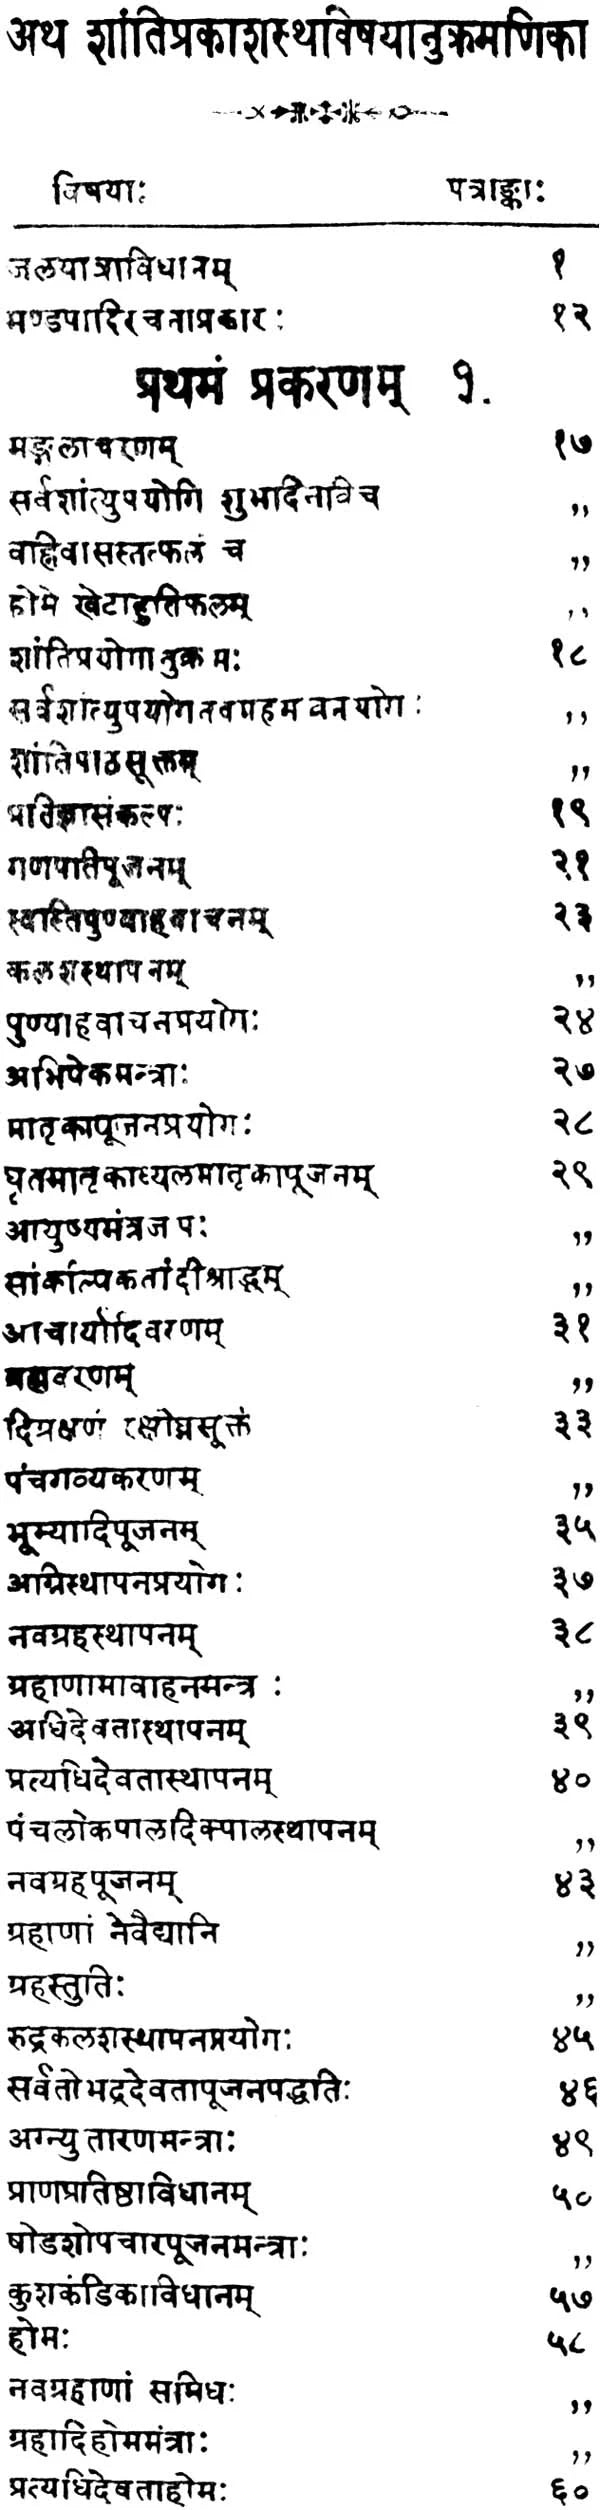 अथ शांतिप्रकाशस्थविषयानुक्रमणिका
विषयाः पत्राङ्काः
जलयात्राविधानम् १
मण्डपादिरचनाप्रकारः १२
प्रथमं प्रकरणम् १.
मङ्गलाचरणम् १७
सर्वशांत्युपयोगि शुभदिनावि च ,,
वह्निवासस्तत्फलं च ,,
होमे खेटाहुतिफलम् ,,
शांतिप्रयोगानुक्रमः १८
सर्वशांत्युपयोगनवग्रहमखप्रयोगः ,,
शांतिपाठसूक्तम् ,,
प्रतिज्ञासंकल्पः १९
गणपतिपूजनम् २१
स्वस्तिपुण्याहवाचनम् २३
कलशस्थापनम् ,,
पुण्याहवाचनप्रयोगः २४
अभिषेकमन्त्राः २७
मातृकापूजनप्रयोगः २८
घृतमातृकास्थलमातृकापूजनम् २९
आयुष्यमंत्रजपः ,,
सांकल्पिकनांदीश्राद्धम् ,,
आचार्यादिवरणम् ३१
ब्रह्मवरणम् ,,
दिग्रक्षणं रक्षोघ्नसूक्तं ३३
पंचगव्यकरणम् ,,
भूम्यादिपूजनम् ३५
अग्निस्थापनप्रयोगः ३७
नवग्रहस्थापनम् ३८
ग्रहाणामावाहनमन्त्र : ,,
अधिदेवतास्थापनम् ३९
प्रत्यधिदेवतास्थापनम् ४०
पंचलोकपालदिक्पालस्थापनम् ,,
नवग्रहपूजनम् ४३
ग्रहाणां नैवेद्यानि ,,
ग्रहस्तुतिः ,,
रुद्रकलशस्थापनप्रयोगः ४५
सर्वतोभद्रदेवतापूजनपद्धतिः ४६
अग्न्युतारणमन्त्राः ४९
प्राणप्रतिष्ठाविधानम् ५०
षोडशोपचारपूजनमन्त्राः ,,
कुशकंडिकाविधानम् ५७
होमः ५८
नवग्रहाणां समिधः ,,
ग्रहादिहोममंत्राः ,,
प्रत्यधिदेवताहोमः ६०